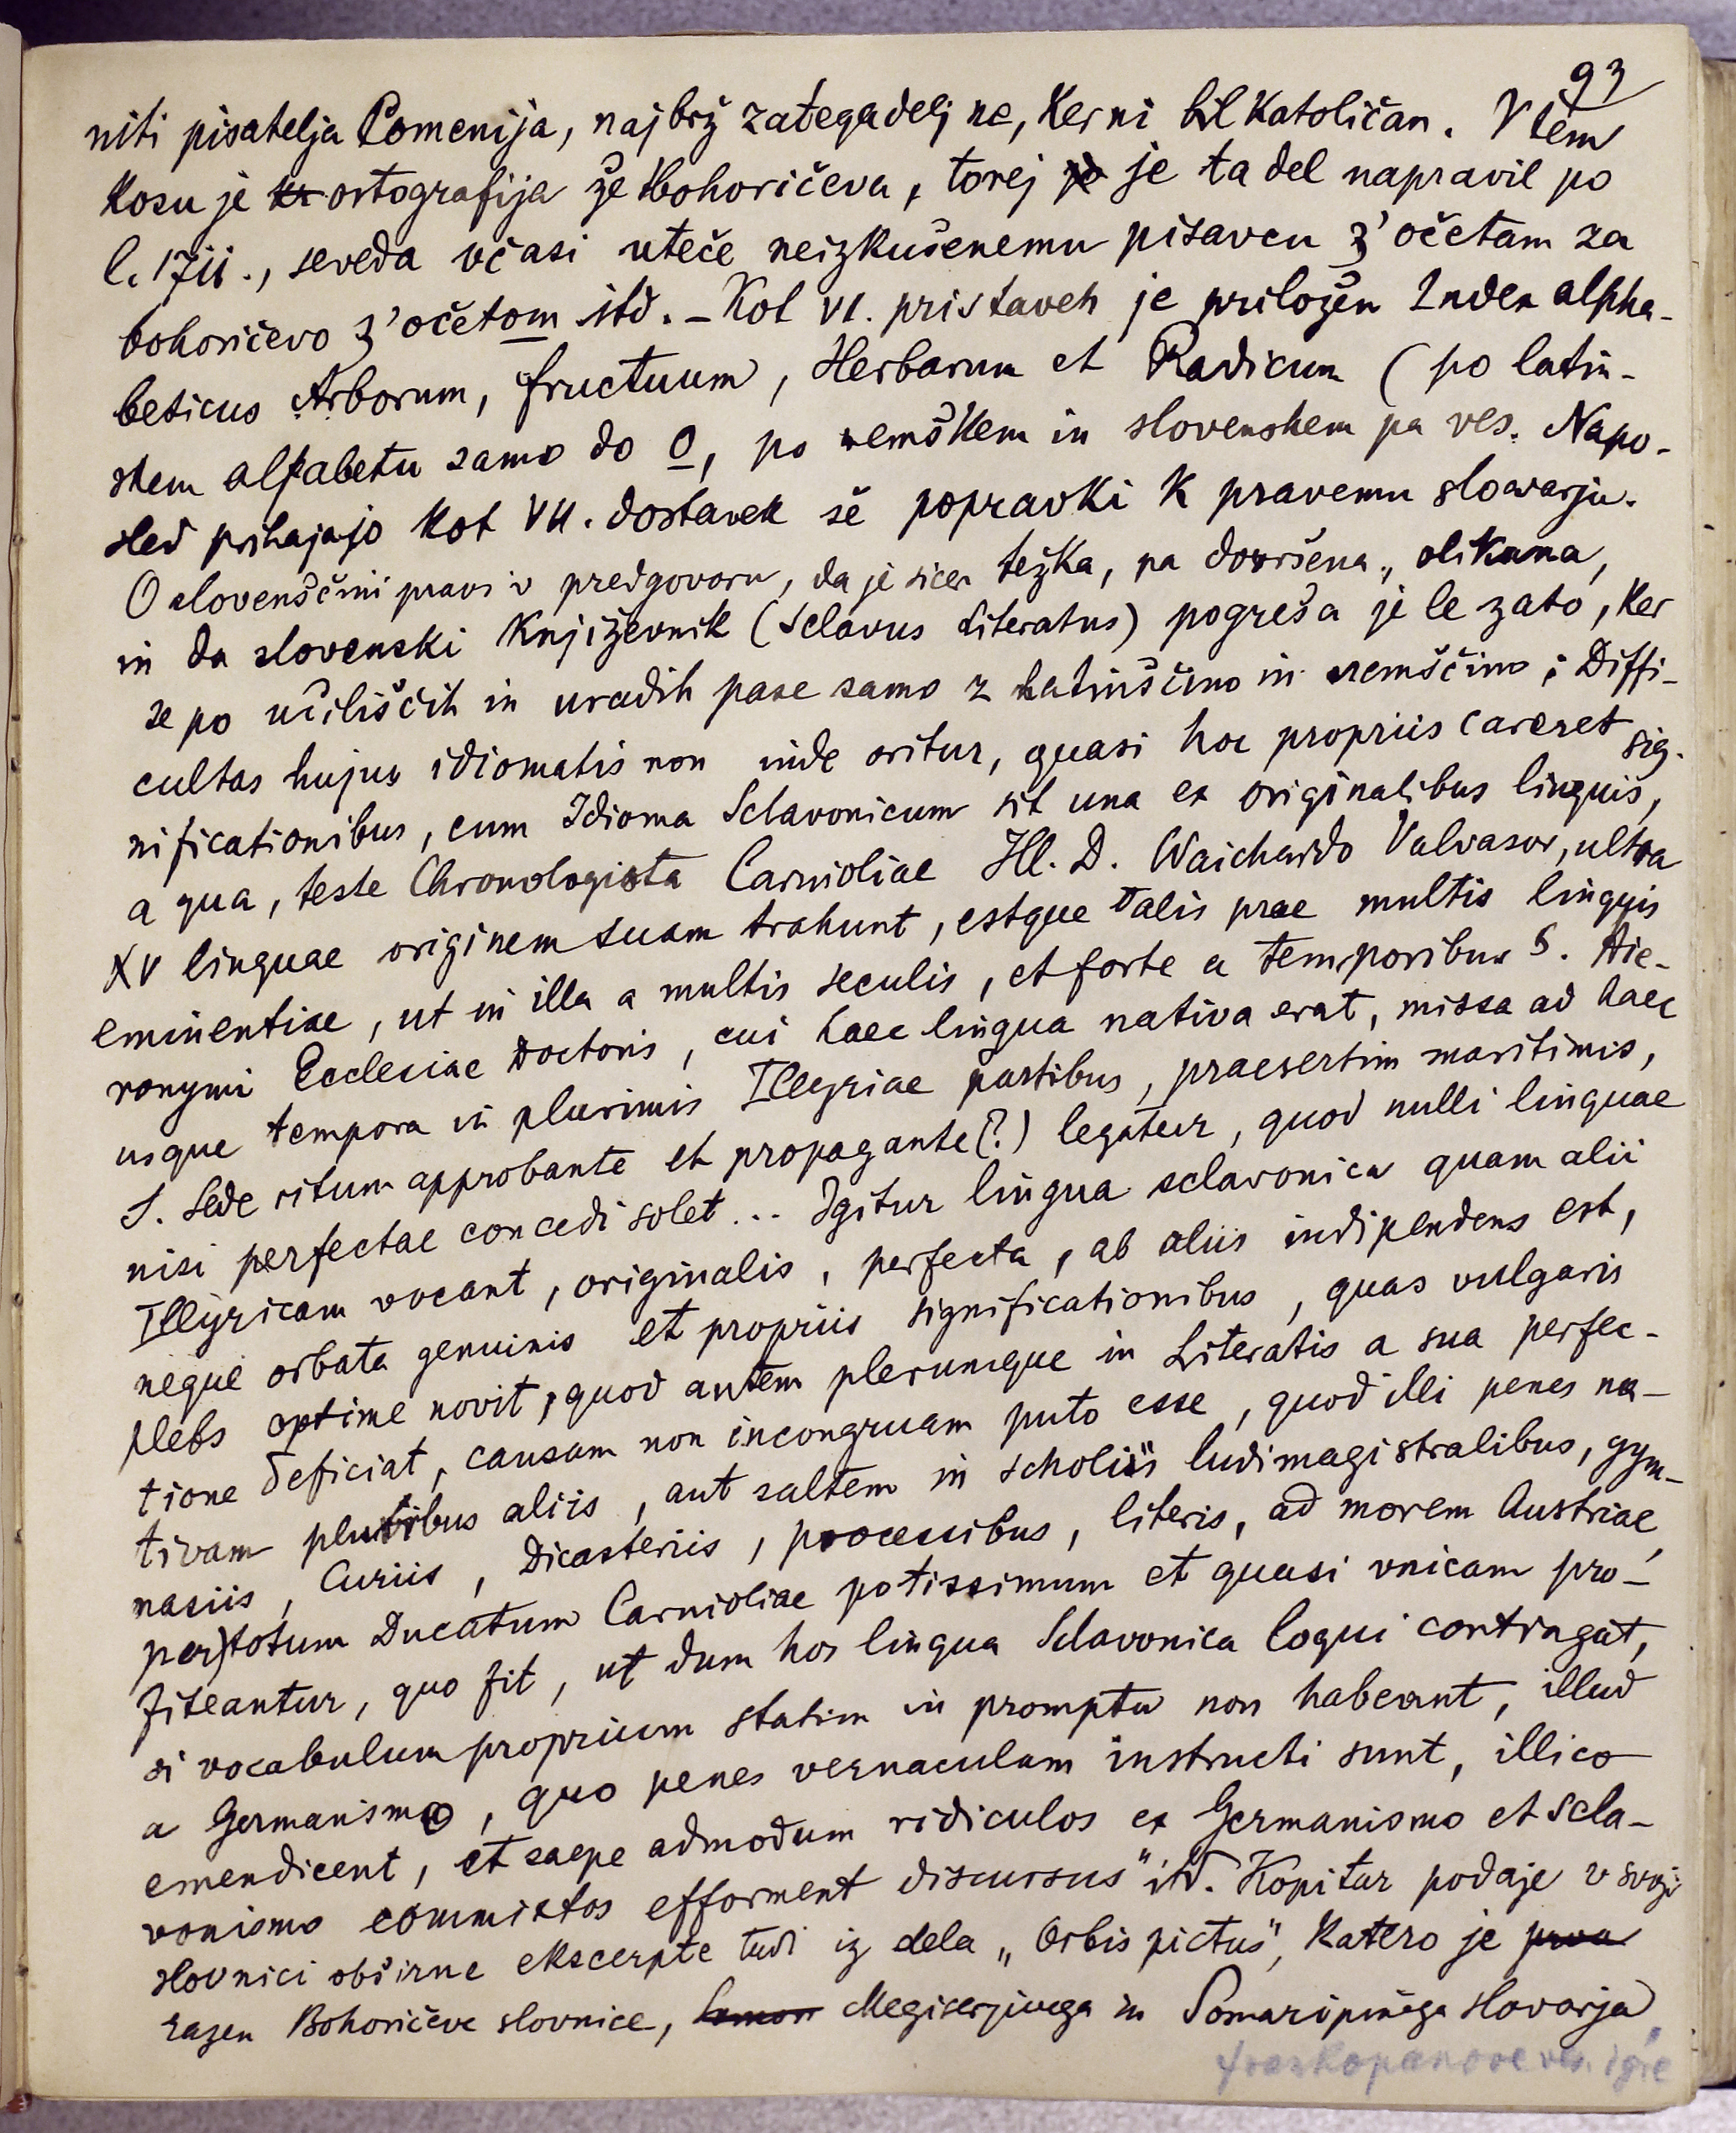 93
niti pisatelja Comenija, najbrž zategadelj ne, ker ni bil katoličan. V tem
kosu je kr ortografija že bohoričeva, torej jo je ta del napravil po
l. 1711., seveda včasi uteče neizkušenemu pisavcu z' očetam za
bohoričevo z' očetom itd. – Kot VI. pristaveh je priložen Index alpha-
beticus Arborum, fructuum, Herbarum et Radicum (po latin-
skem alfabetu samo do o, po nemškem in slovenskem pa ves. Napo-
sled prihajajo kot VII. dostavek še popravki k pravemu slovarju.
O slovenščini pravi v predgovoru, da je sicer težka, pa dovršena, olikana,
in da slovenski književnik (Sclavus Literatus) pogreša je le zato, ker
se po učiliščih in uradih pase samo z latinščino in nemščino; Diffi-
cultas hujus idiomatis non inde oritur, quasi hoc propriis careret sig-
nificationibus, cum Idioma Sclavonicum sit una ex originalibus linguis,
a qua, teste Chronologista Carnioliae Ill. D. Waichardo Valvasor, ultra
XV linguae originem suam trahunt, estque talis prae multis linguis
eminentiae, ut in illa a multis seculis, et forte a temporibus S. Hie-
ronymi Ecclesiae Doctoris, cui haec lingua nativa erat, missa ad haec
usque tempora in plurimis Illyriae partibus, praesertim maritimis,
S. Sede ritum approbante et propagante (?) legatur, quod nulli linguae
nisi perfectae concedi solet... Igitur lingua sclavonica quam alii
Illyricam vocant, originalis, perfecta, ab aliis indipendens est,
neque orbata genuinis et propriis significationibus, quas vulgaris
plebs optime novit, quod autem plerumque in Literatis a sua perfec-
tione deficiat, causam non incongruam puto esse, quod illi penes na-
tivam pluribus aliis, aut saltem in scholiis ludimagistralibus, gym-
nasiis, Curiis, Dicasteriis, processibus, literis, ad morem Austriae,
per totum Ducatum Carnioliae potissimum et quasi unicam pro-
fiteantur, quo fit, ut dum hos lingua Sclavonica loqui contingat,
si vocabulum proprium statim in promptu non habeant, illud
a Germanismo, quo penes vernaculam instructi sunt, illico
emendicent, et saepe admodum ridiculos ex Germanismo et Scla-
vonismo commixtos efforment discursus" itd. Kopitar podaje v svoji
slovnici obširne ekscerpte tudi iz dela „Orbis pictus", katero je prva
razen Bohoričeve slovnice, Megiserjivega in Somaripinega slovarja,